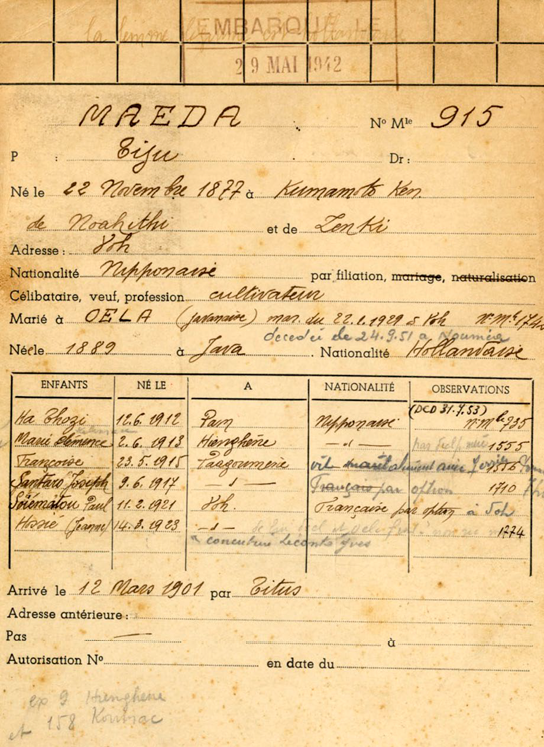 la femme
EMBARQUÉ LE
29 MAI 1942
MAEDA No Mle 915
P : Eiju Dr:
Né le 22 Novembre 1877 à Kumamoto Ken
de Noakithi et de Zenki
Adresse : Voh
Nationalité Nipponaise par filiation, mariage, naturalisation
Célibataire, veuf, profession cultivateur
Marié à OELA (javanaise) mar. du 22.1.1929 à Voh n° Mle
décédée le 24.9.51 à Nouméa
Née le 1889 à Java Nationalité Hollandaise
ENFANTS NÉ LE A NATIONALITÉ OBSERVATIONS
(DCD 31.7.53)
Ha Thozi 12.6.1912 Pam Nipponaise n° Mle 735
Marie Clémence 2.6.1913 Hienghène -"- 1555
Françoise 23.5.1915 Taagoumenie vit avec
Santaro Joseph 9.6.1917 " Française par option 1710
Paul 11.2.1921 Voh. Française par option à Voh
(Jeanne) 14.3.1923 -"- 1774
concubine Leconte Yves
Arrivé le 12 Mars 1901 par Titus
Adresse antérieure :
Pas — à
Autorisation No en date du
ex 9 Hienghène
et 158 Koumac